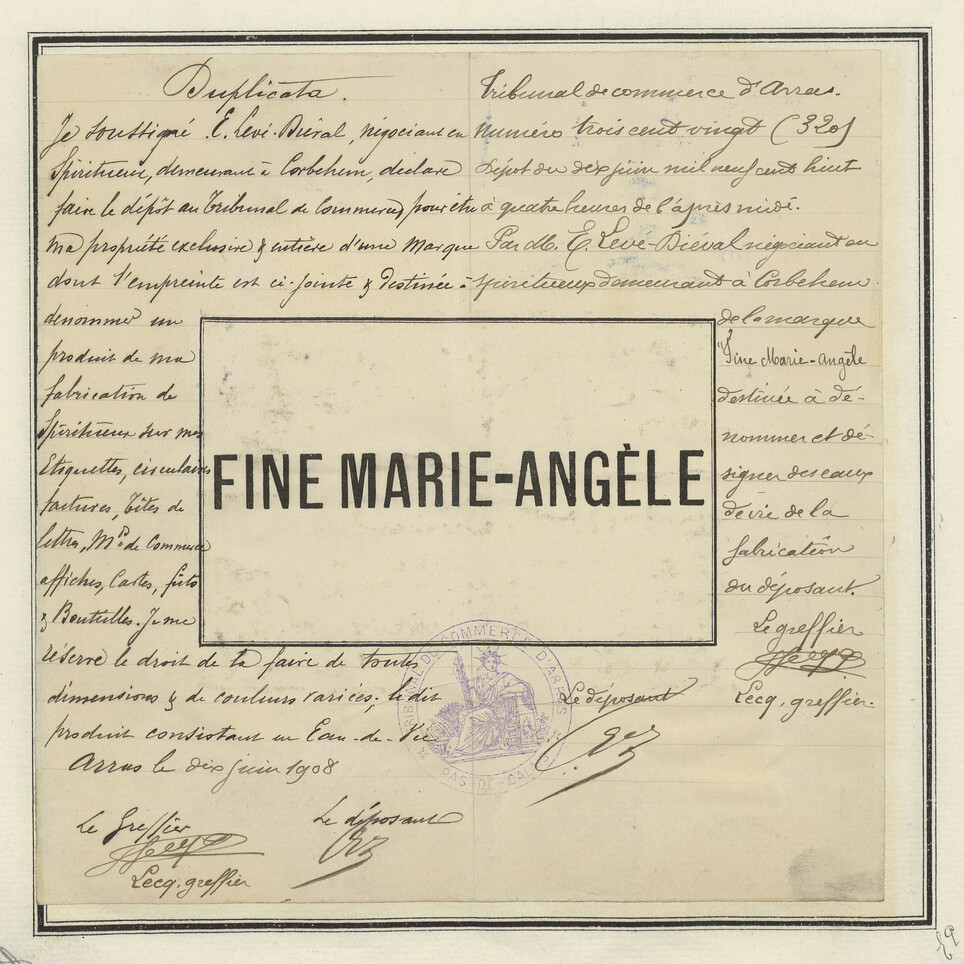 Duplicata.
Je soussigné E. Levé-Biéval, négociant en
Spiritueux, demeurant à Corbehem, déclare
faire le dépôt au Tribunal de Commerce, pour être
ma propriété exclusive & entière d'une Marque
dont l'empreinte est ci-jointe & destinée à
dénommer un
produit de ma
fabrication de
Spiritueux sur mes
Etiquettes, circulaires
factures, têtes de
lettres, de Commerce
affiches, Cartes, fûts
& Bouteilles. Je me
réserve le droit de la faire de toutes
dimensions & de couleurs variées; le dit
produit consistant en Eau-de-Vie
Arras le dix juin 1908
Le Greffier
Lecq. greffier
Le déposant
Tribunal de commerce d'Arras.
Numéro trois cent vingt (320)
Dépôt du dix juin mil neuf cent huit
à quatre heures de l'après midi.
Par M. E. Levé-Biéval négociant en
spiritueux demeurant à Corbehem.
de la marque
"Fine Marie-Angèle
destinée à dé-
nommer et dé-
signer des eaux
de vie de la
fabrication
du déposant.
Le greffier
Lecq. greffier.
Le déposant
FINE MARIE-ANGÈLE
TRIBUNAL DE COMMERCE D'ARRAS
PAS-DE-CALAIS